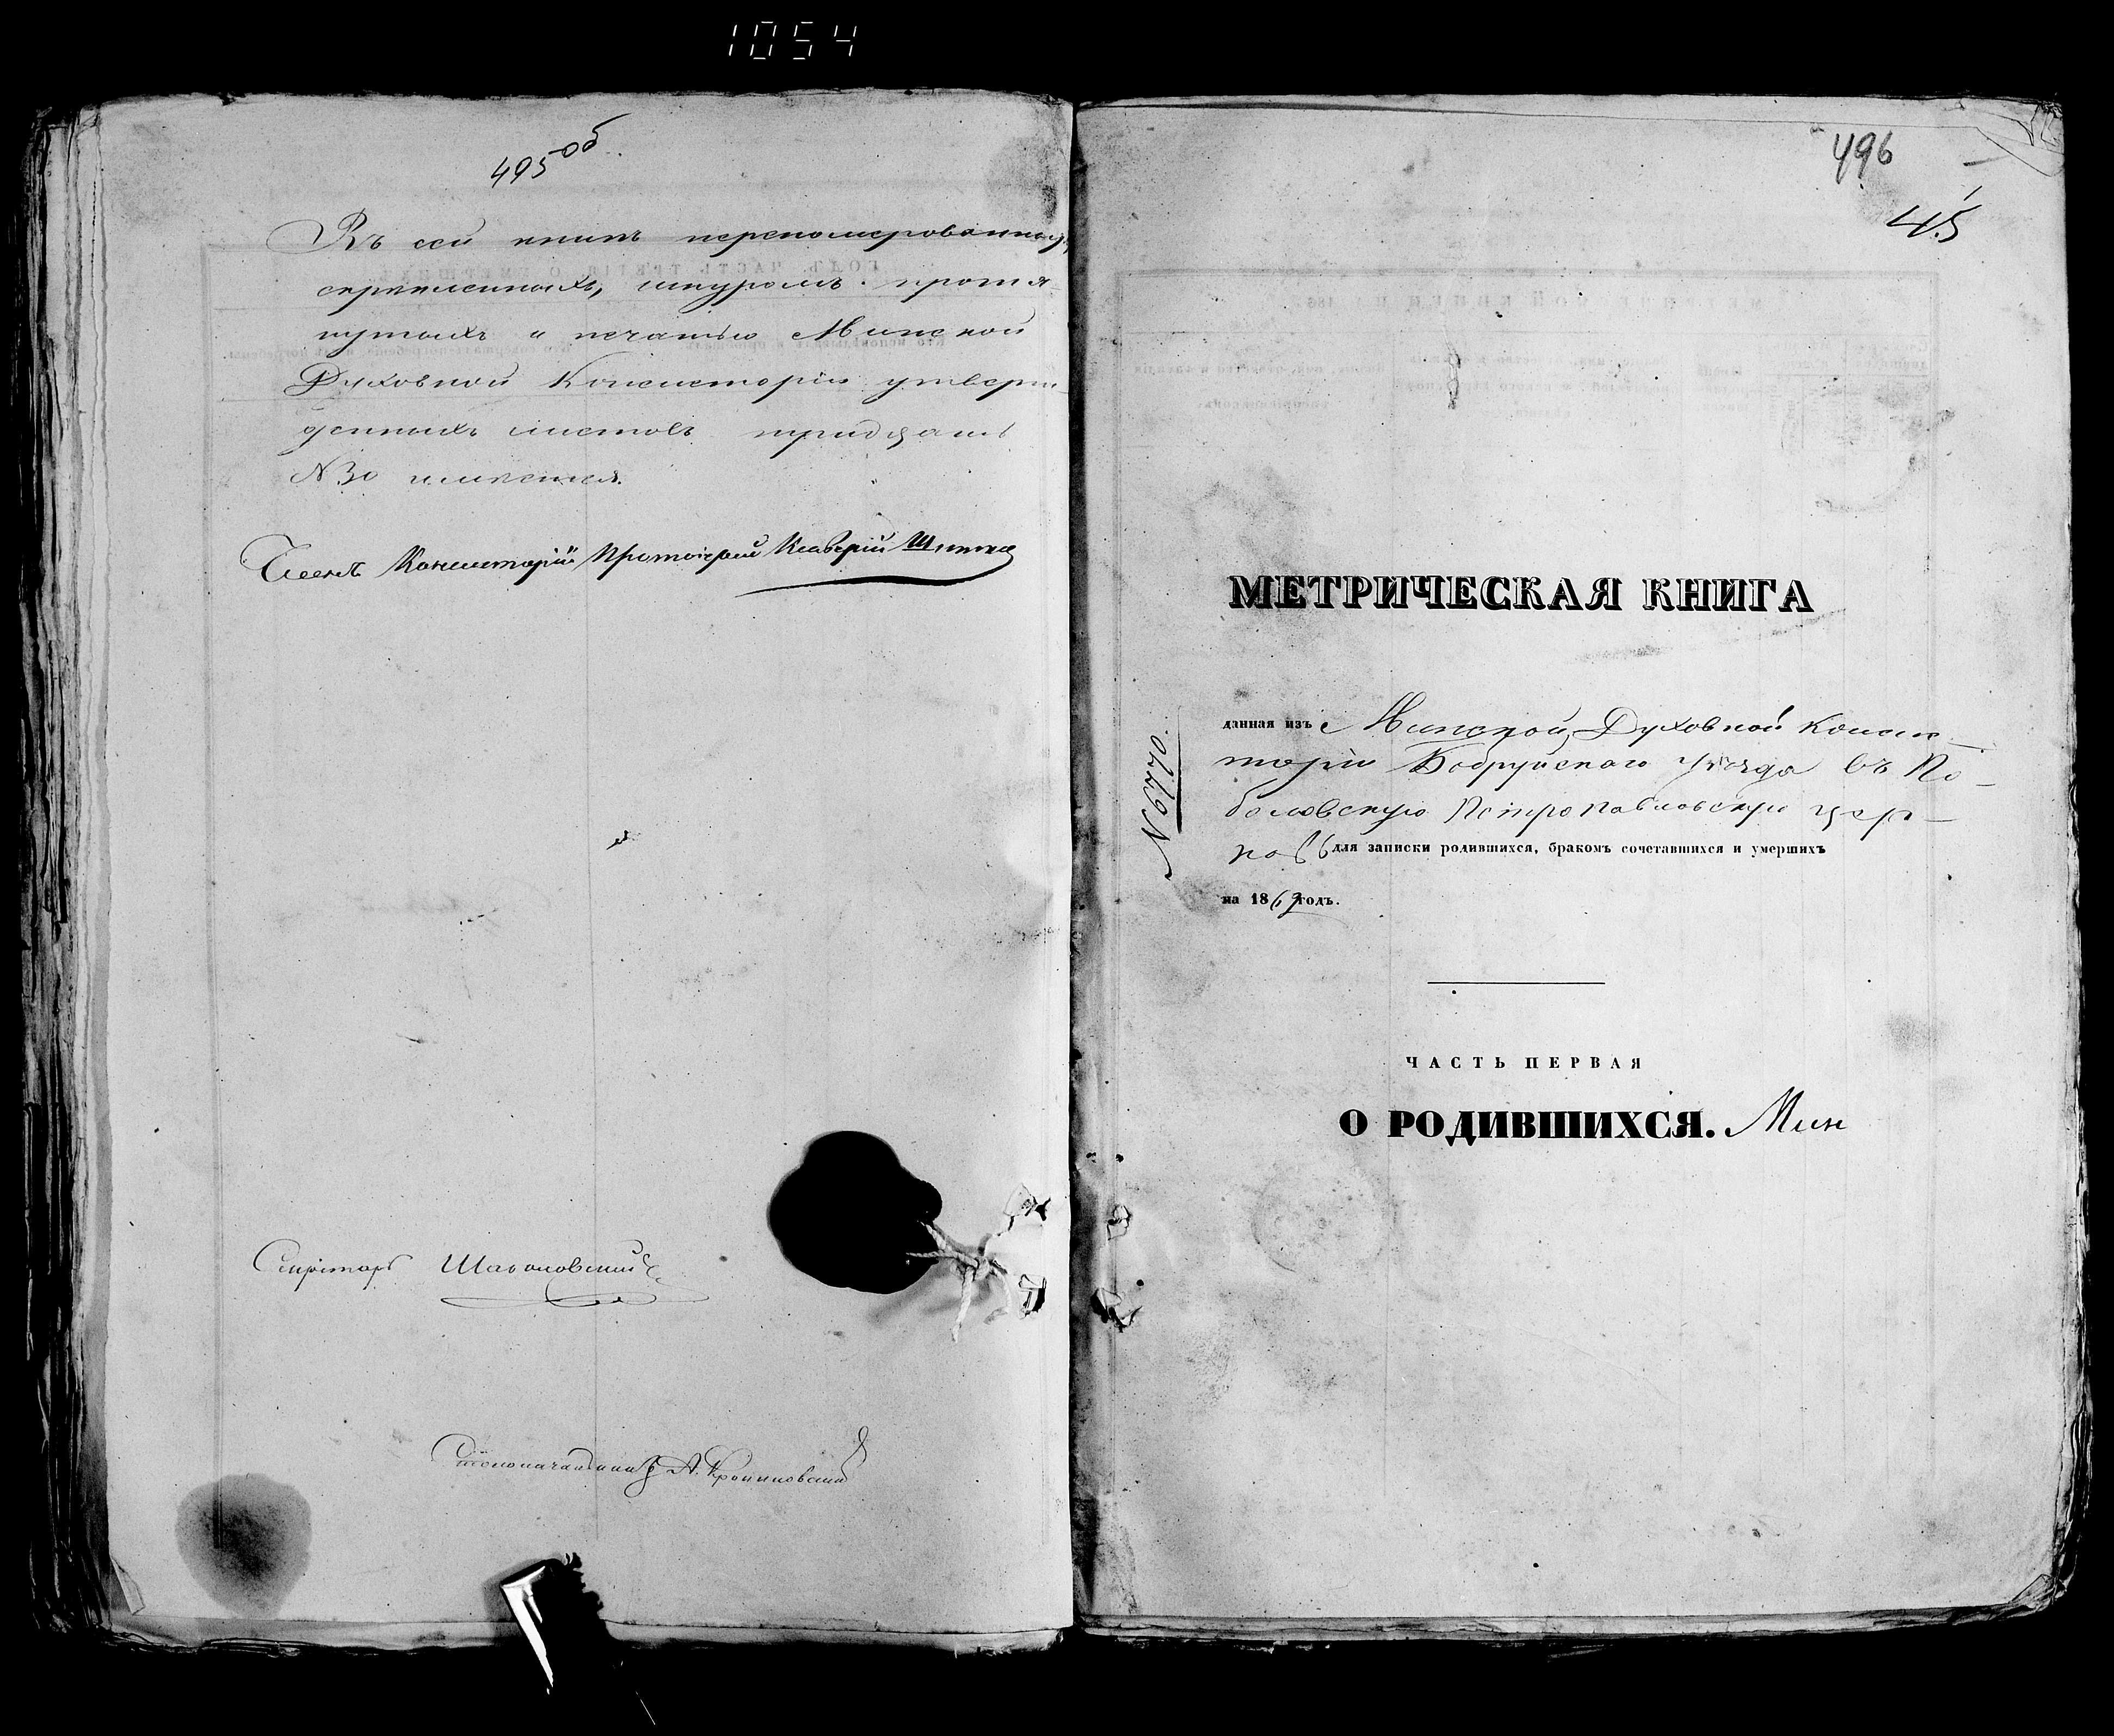 1054
495 об
Въ сей книгѣ перенумерованныхъ,
скрѣпленныхъ, шнуромъ протя-
нутыхъ и печатью Минской
Духовной Консисторіи утверж-
денныхъ листовъ тридцать
№ 30 имѣется.
Членъ Консисторіи Протоіерей
Секретарь
Столоначальникъ А.
496
45
МЕТРИЧЕСКАЯ КНИГА
данная изъ Минской Духовной Консис-
торіи Бобруйскаго Уѣзда въ По-
боловскую Петропавловскую цер-
ковь для записки родившихся, бракомъ сочетавшихся и умершихъ
на 1869 годъ.
№ 9770.
ЧАСТЬ ПЕРВАЯ
О РОДИВШИХСЯ. Мин